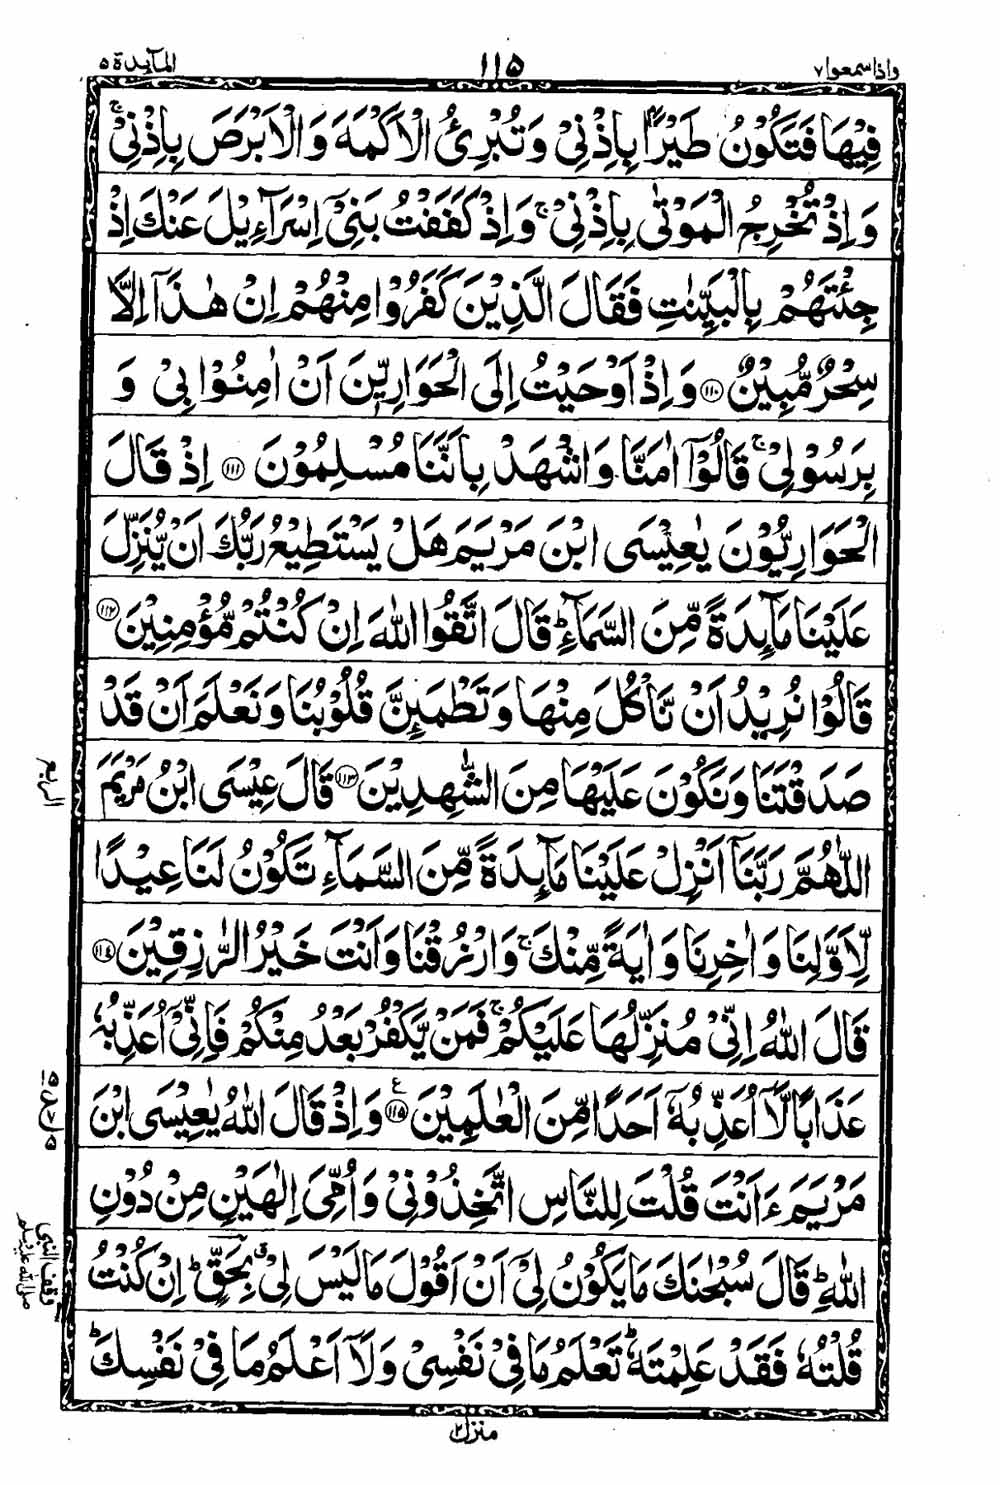 المآئدة ۵
۱۱۵
واذا سمعوا ۷
فِيْهَا فَتَكُوْنُ طَيْرًۢا بِاِذْنِيْ وَتُبْرِئُ الْاَكْمَهَ وَالْاَبْرَصَ بِاِذْنِيْ ۚ
وَاِذْ تُخْرِجُ الْمَوْتٰى بِاِذْنِيْ ۚ وَاِذْ كَفَفْتُ بَنِيْٓ اِسْرَآءِيْلَ عَنْكَ اِذْ
جِئْتَهُمْ بِالْبَيِّنٰتِ فَقَالَ الَّذِيْنَ كَفَرُوْا مِنْهُمْ اِنْ هٰذَآ اِلَّا
سِحْرٌ مُّبِيْنٌ ﴿۱۱۰﴾ وَاِذْ اَوْحَيْتُ اِلَى الْحَوَارِيّٖنَ اَنْ اٰمِنُوْا بِيْ وَ
بِرَسُوْلِيْ ۚ قَالُوْٓا اٰمَنَّا وَاشْهَدْ بِاَنَّنَا مُسْلِمُوْنَ ﴿۱۱۱﴾ اِذْ قَالَ
الْحَوَارِيُّوْنَ يٰعِيْسَى ابْنَ مَرْيَمَ هَلْ يَسْتَطِيْعُ رَبُّكَ اَنْ يُّنَزِّلَ
عَلَيْنَا مَآئِدَةً مِّنَ السَّمَآءِ ؕ قَالَ اتَّقُوا اللّٰهَ اِنْ كُنْتُمْ مُّؤْمِنِيْنَ ﴿۱۱۲﴾
قَالُوْا نُرِيْدُ اَنْ نَّاْكُلَ مِنْهَا وَتَطْمَئِنَّ قُلُوْبُنَا وَنَعْلَمَ اَنْ قَدْ
صَدَقْتَنَا وَنَكُوْنَ عَلَيْهَا مِنَ الشّٰهِدِيْنَ ﴿۱۱۳﴾ قَالَ عِيْسَى ابْنُ مَرْيَمَ
اللّٰهُمَّ رَبَّنَآ اَنْزِلْ عَلَيْنَا مَآئِدَةً مِّنَ السَّمَآءِ تَكُوْنُ لَنَا عِيْدًا
لِّاَوَّلِنَا وَاٰخِرِنَا وَاٰيَةً مِّنْكَ ۚ وَارْزُقْنَا وَاَنْتَ خَيْرُ الرّٰزِقِيْنَ ﴿۱۱۴﴾
قَالَ اللّٰهُ اِنِّيْ مُنَزِّلُهَا عَلَيْكُمْ ۚ فَمَنْ يَّكْفُرْ بَعْدُ مِنْكُمْ فَاِنِّيْٓ اُعَذِّبُهٗ
عَذَابًا لَّآ اُعَذِّبُهٗٓ اَحَدًا مِّنَ الْعٰلَمِيْنَ ﴿۱۱۵﴾ ع وَاِذْ قَالَ اللّٰهُ يٰعِيْسَى ابْنَ
مَرْيَمَ ءَاَنْتَ قُلْتَ لِلنَّاسِ اتَّخِذُوْنِيْ وَاُمِّيَ اِلٰهَيْنِ مِنْ دُوْنِ
اللّٰهِ ؕ قَالَ سُبْحٰنَكَ مَا يَكُوْنُ لِيْٓ اَنْ اَقُوْلَ مَا لَيْسَ لِيْ ۗ بِحَقٍّ ؕ اِنْ كُنْتُ
قُلْتُهٗ فَقَدْ عَلِمْتَهٗ ؕ تَعْلَمُ مَا فِيْ نَفْسِيْ وَلَآ اَعْلَمُ مَا فِيْ نَفْسِكَ ؕ
الربع
وقف النبی
صلی اللہ علیہ وسلم
منزل ۲